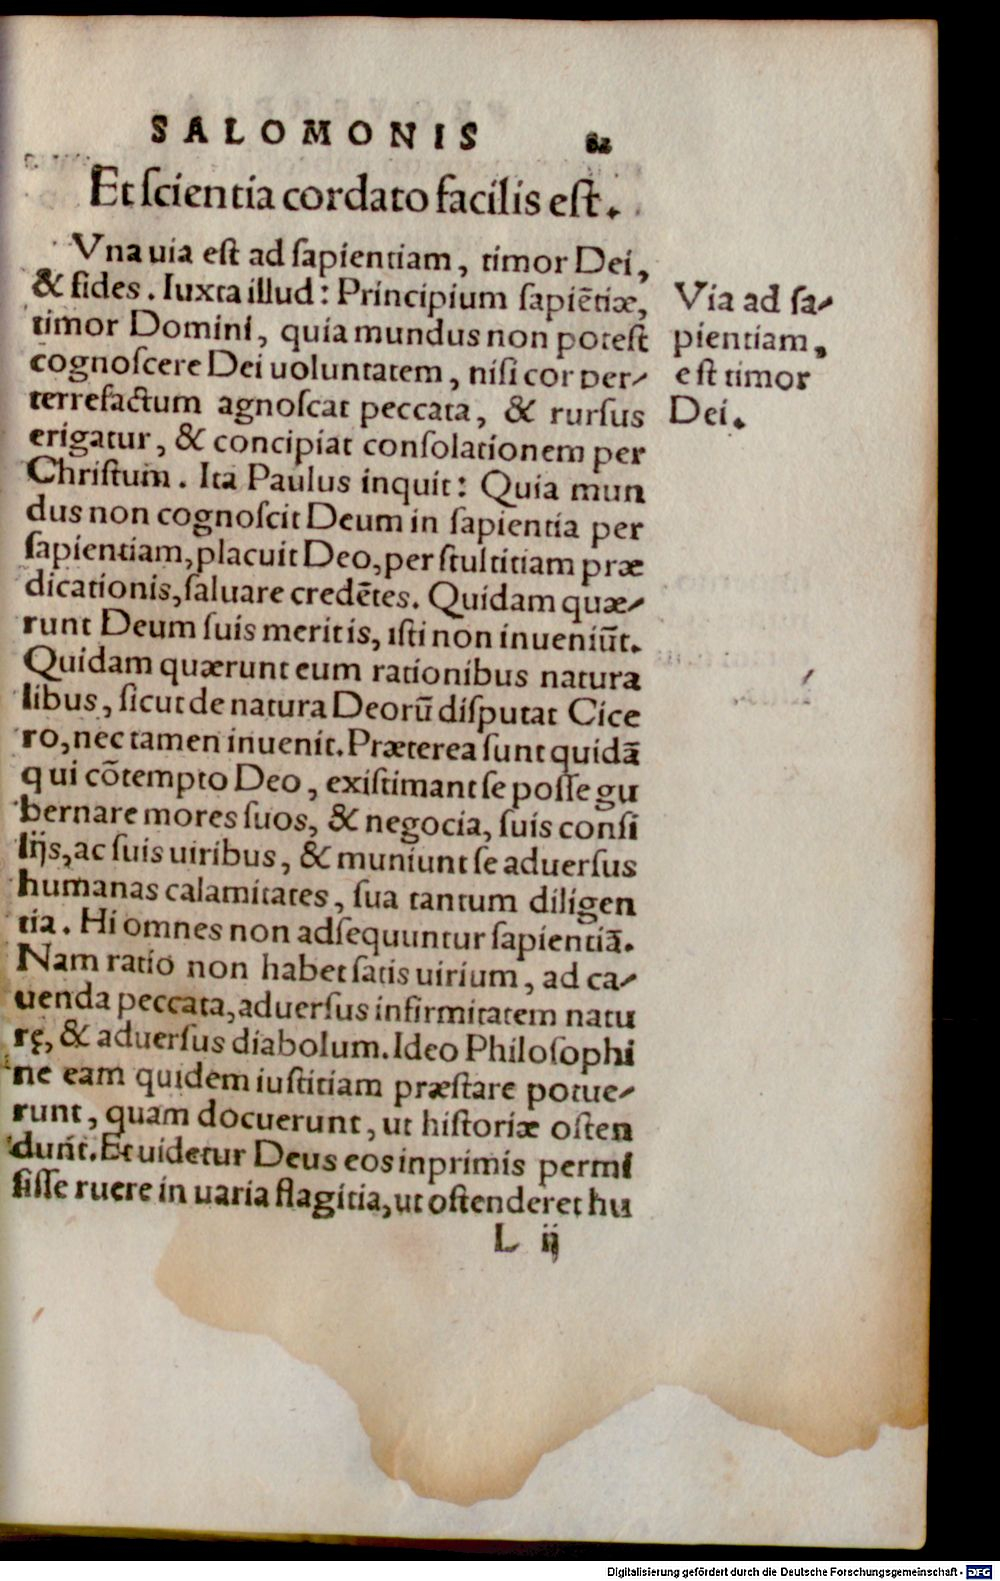 SALOMONIS 82
Et ſcientia cordato facilis eſt.
Vna uia eſt ad ſapientiam, timor Dei,
& fides. Iuxta illud: Principium ſapiētiæ,
timor Domini, quia mundus non poteſt
cognoſcere Dei uoluntatem, niſi cor per-
terrefactum agnoſcat peccata, & rurſus
erigatur, & concipiat conſolationem per
Chriſtum. Ita Paulus inquit: Quia mun
dus non cognoſcit Deum in ſapientia per
ſapientiam, placuit Deo, per ſtultitiam præ
dicationis, ſaluare credētes. Quidam quæ-
runt Deum ſuis meritis, iſti non inueniūt.
Quidam quærunt eum rationibus natura
libus, ſicut de natura Deorū diſputat Cice
ro, nec tamen inuenit. Præterea ſunt quidā
qui cōtempto Deo, exiſtimant ſe poſſe gu
bernare mores ſuos, & negocia, ſuis conſi
lijs, ac ſuis uiribus, & muniunt ſe aduerſus
humanas calamitates, ſua tantum diligen
tia. Hi omnes non adſequuntur ſapientiā.
Nam ratio non habet ſatis uirium, ad ca-
uenda peccata, aduerſus infirmitatem natu
rę, & aduerſus diabolum. Ideo Philoſophi
ne eam quidem iuſtitiam præſtare potue-
runt, quam docuerunt, ut hiſtoriæ oſten
dunt. Et uidetur Deus eos inprimis permi
ſiſſe ruere in uaria flagitia, ut oſtenderet hu
L ij
Via ad ſa-
pientiam,
eſt timor
Dei.
Digitalisierung gefördert durch die Deutsche Forschungsgemeinschaft - DFG